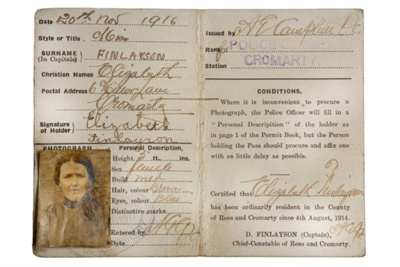 Date 20th Nov 1916
Style or Title
SURNAME
(In Capitals) FINLAYSON
Christian Names Elizabeth
Postal Address
Cromarty
Signature of Holder Elizabeth
Finlayson
PHOTOGRAPH
Personal Description.
Height ft. ins.
Sex female
Build med
Hair, colour
Eyes, colour
Distinctive marks
Entered by
Date
Issued by A E
Rank
POLICE
Station CROMARTY
CONDITIONS.
Where it is inconvenient to procure a
Photograph, the Police Officer will fill in
a "Personal Description" of the holder
in page 1 of the Permit Book, but the Person
holding the Pass should procure and affix one
with as little delay as possible.
Certified that Elizabeth Finlayson
has been ordinarily resident in the County
of Ross and Cromarty since 4th August, 1914.
D. FINLAYSON (Captain),
Chief-Constable of Ross and Cromarty.